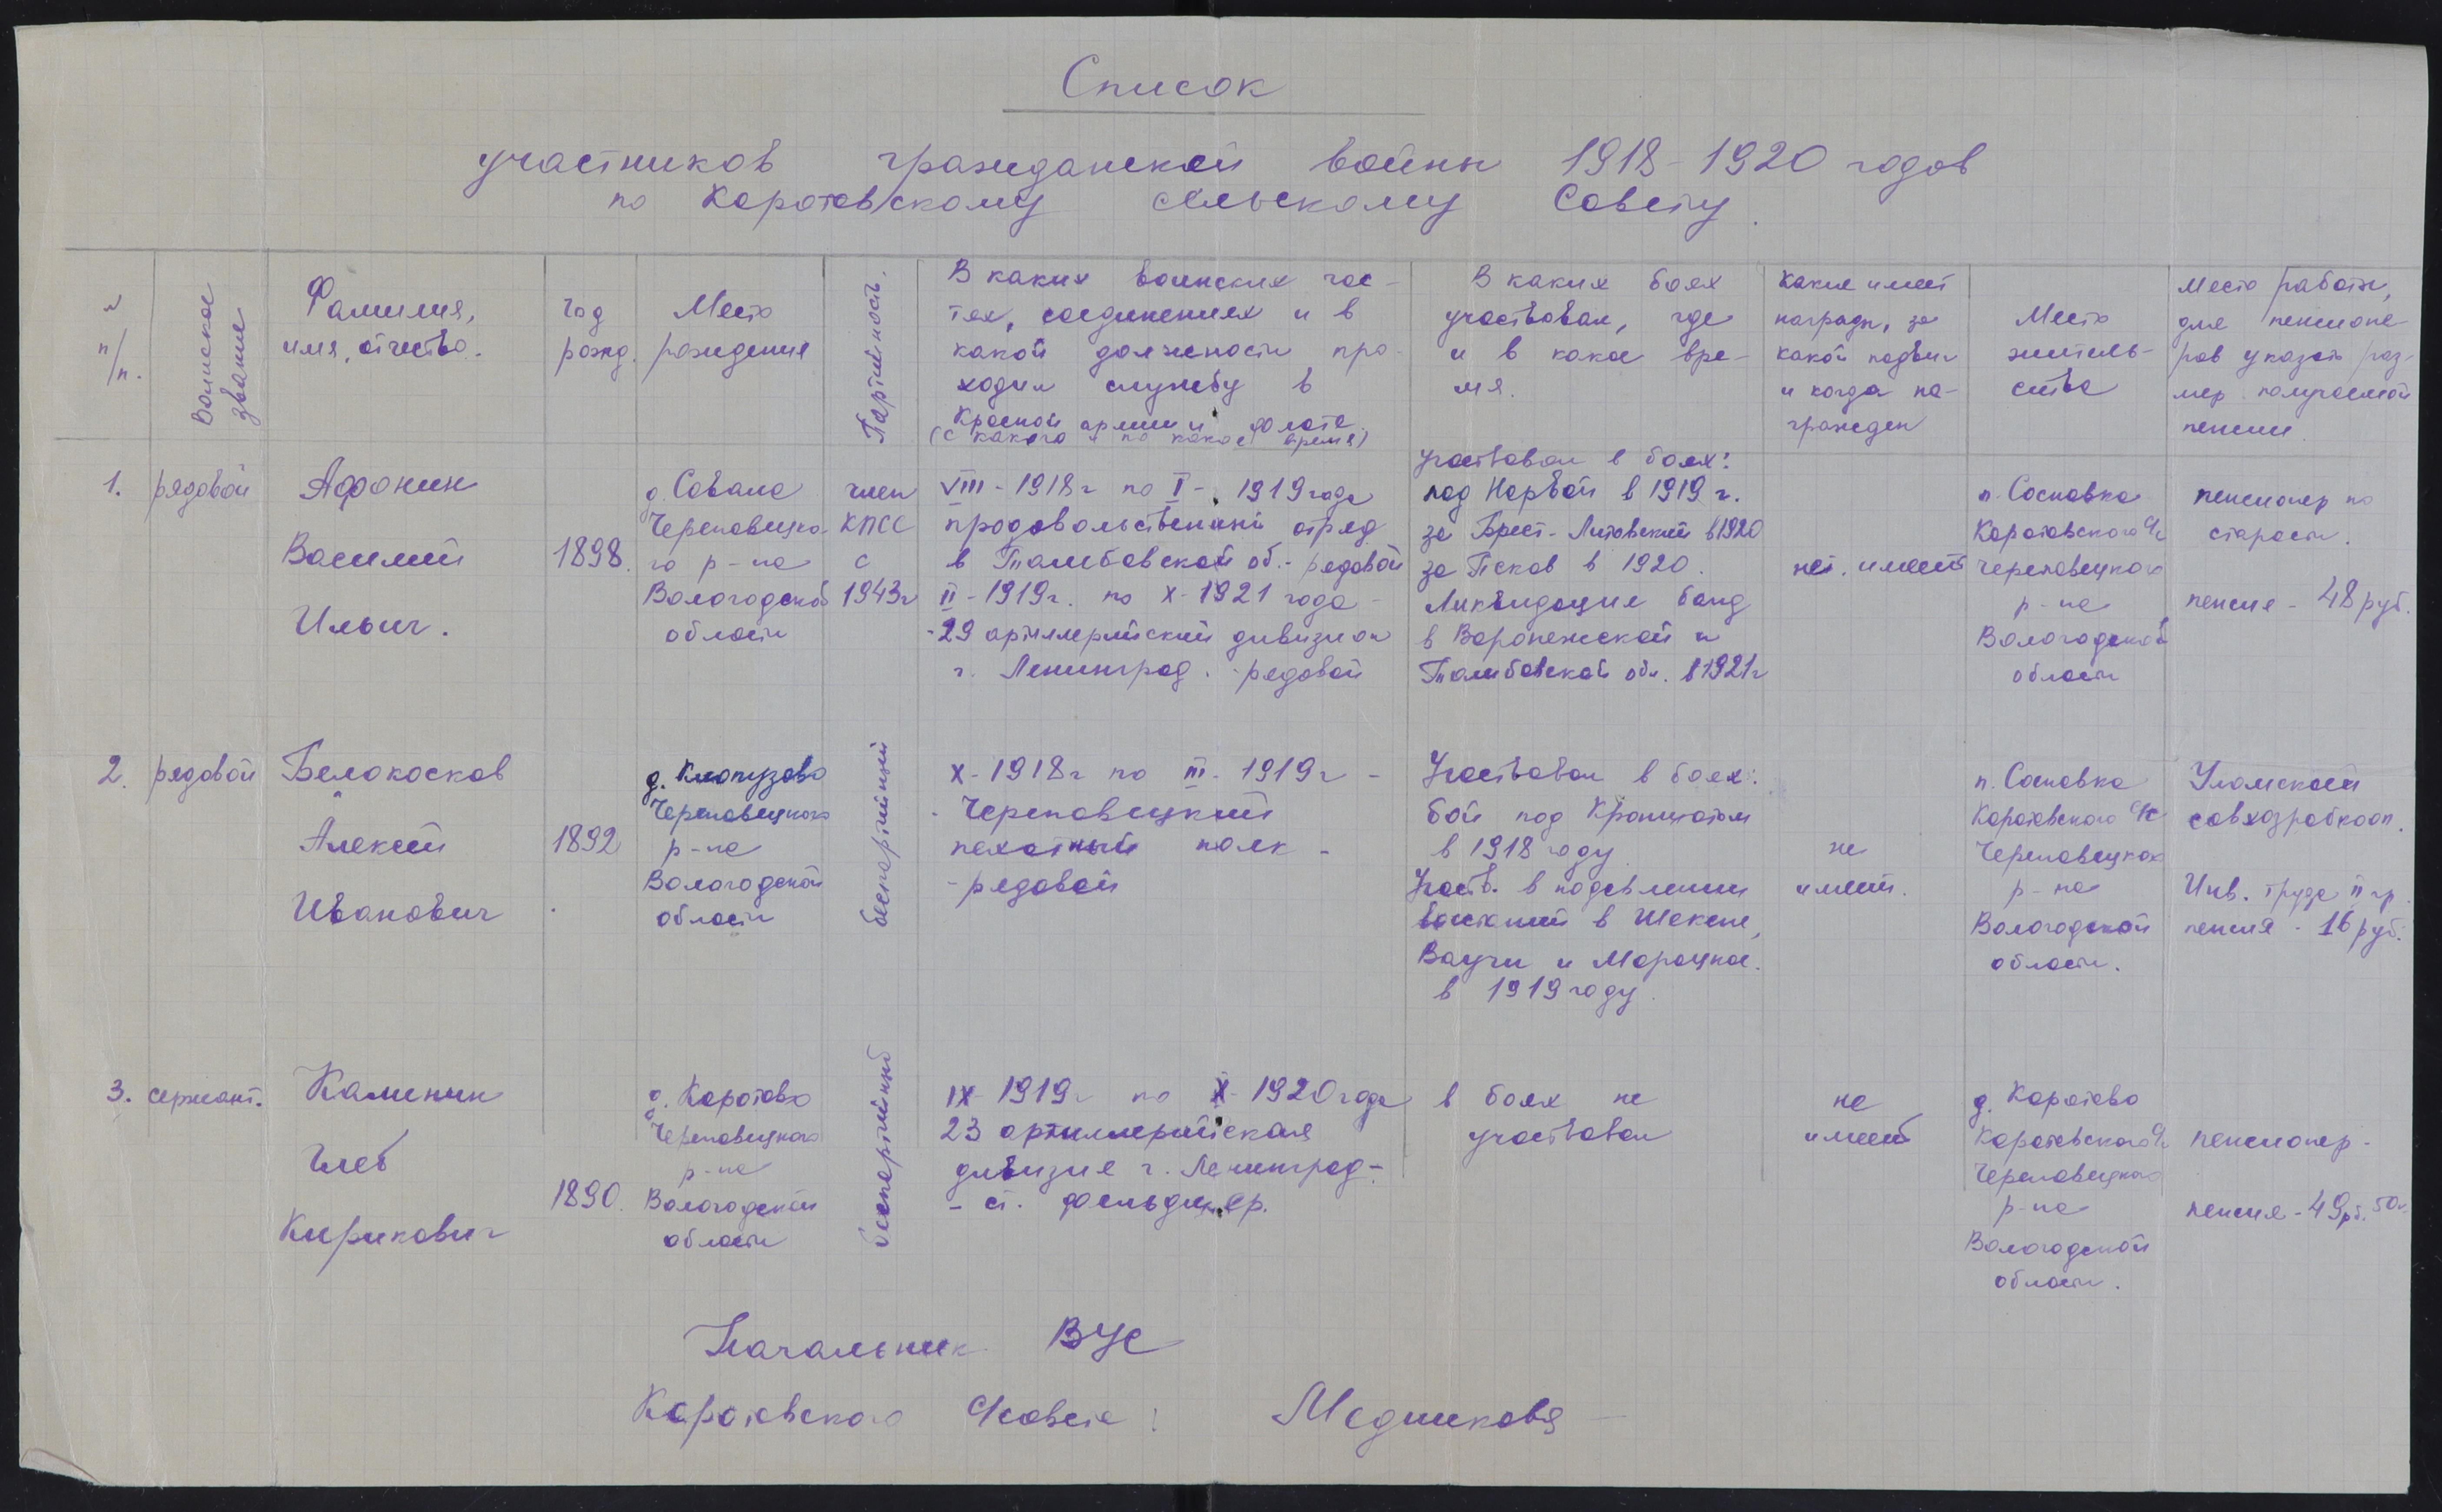 Список
участников гражданской войны 1918-1920 годов
по Коротовскому сельскому Совету.
№ п/п.
Воинское звание
Фамилия,
имя, отчество.
Год
рожд.
Место
рождения
Партийность.
В каких воинских час-
тях, соединениях и в
какой должности про-
ходил службу в
Красной армии и флоте.
(с какого и по какое время)
В каких боях
участвовал, где
и в какое вре-
мя.
Какие имеет
награды, за
какой подвиг
и когда на-
гражден
Место
житель-
ства
Место работы,
для пенсионе-
ров указать раз-
мер получаемой
пенсии.
1.
рядовой
Афонин
Василий
Ильич.
1898.
д. Совала
Череповецко-
го р-на
Вологодской
области
член
КПСС
с
1943г
VIII-1918г по I-1919года
продовольственный отряд
в Тамбовской об.- рядовой
II-1919г. по X-1921 года -
-29 артиллерийский дивизион
г. Ленинград. - рядовой
Участвовал в боях:
под Нарвой в 1919 г.
за Брест-Литовский в 1920
за Псков в 1920.
Ликвидация банд
в Воронежской и
Тамбовской обл. в 1921г
не имеет
п. Сосновка
Коротовского с/с
Череповецкого
р-на
Вологодской
области
пенсионер по
старости.
пенсия - 48 руб.
2.
рядовой
Белокосков
Алексей
Иванович
1892
д. Клопузово
Череповецкого
р-на
Вологодской
области
беспартийный
X-1918г по III-1919г -
- Череповецкий
пехотный полк -
- рядовой
Участвовал в боях:
бой под Кронштатом
в 1918 году
Участв. в подавлении
восстаний в Шексне,
в 1919 году.
не
имеет.
п. Сосновка
Коротовского с/с
Череповецкого
р-на
Вологодской
области.
Уломский
совхозрабкооп.
Инв. труда II гр.
пенсия - 16 руб.
3.
сержант.
Каминин
Глеб
Кирикович
1890.
д. Коротово
Череповецкого
р-на
Вологодской
области
беспартийный
IX-1919г по X-1920 года
23 артиллерийская
дивизия г. Ленинград-
- ст. фельдшер.
в боях не
участвовал
не
имеет
д. Коротово
Коротовского с/с
Череповецкого
р-на
Вологодской
области.
пенсионер -
пенсия - 49рб. 50к.
Начальник ВУС
Коротовского с/совета: Медникова